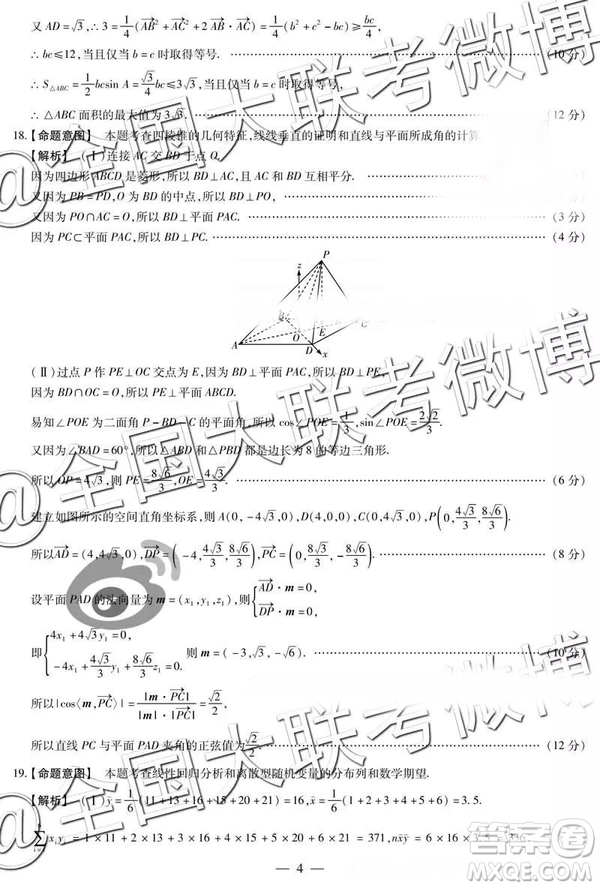 又 AD = √3, ∴ 3 = 1/4(AB² + AC² + 2AB·AC) = 1/4(b² + c² + bc) ≥ bc/4,
∴ bc ≤ 12, 当且仅当 b = c 时取得等号. (10 分)
∴ S△ABC = 1/2 bcsin A = √3/4 bc ≤ 3√3, 当且仅当 b = c 时取得等号.
∴ △ABC 面积的最大值为 3√3. (12 分)
18.【命题意图】 本题考查四棱锥的几何特征,线线垂直的证明和直线与平面所成角的计算.
【解析】 (Ⅰ)连接 AC 交 BD 于点 O.
因为四边形 ABCD 是菱形,所以 BD⊥AC,且 AC,BD 互相平分.
又因为 PB = PD,O 为 BD 的中点,所以 BD⊥PO,
又因为 PO∩AC = O,所以 BD⊥平面 PAC. (3 分)
因为 PC⊂平面 PAC,所以 BD⊥PC. (4 分)
P
z
A
O
D
E
x
(Ⅱ)过点 P 作 PE⊥OC 交点为 E,因为 BD⊥平面 PAC,所以 BD⊥PE,
因为 BD∩OC = O,所以 PE⊥平面 ABCD.
易知∠POE 为二面角 P - BD - C 的平面角,所以 cos∠POE = 1/3, sin∠POE = 2√2/3.
又因为∠BAD = 60°,所以△ABD 和△PBD 都是边长为 8 的等边三角形.
所以 OP = 4√3,则 PE = 8√6/3, OE = 4√3/3. (6 分)
建立如图所示的空间直角坐标系,则 A(0, -4√3, 0), D(4,0,0), C(0,4√3,0), P(0, 4√3/3, 8√6/3).
所以AD = (4,4√3,0), DP = (-4, 4√3/3, 8√6/3), PC = (0, 8√3/3, -8√6/3). (8 分)
设平面 PAD 的法向量为 m = (x₁,y₁,z₁),则{AD·m = 0, DP·m = 0,
即{4x₁ + 4√3y₁ = 0, -4x₁ + 4√3/3 y₁ + 8√6/3 z₁ = 0. 则 m = (-3,√3, -√6). (10 分)
所以|cos⟨m,PC⟩| = |m·PC|/|m|·|PC| = √2/2,
所以直线 PC 与平面 PAD 夹角的正弦值为√2/2. (12 分)
19.【命题意图】 本题考查线性回归分析和离散型随机变量的分布列和数学期望.
【解析】 (Ⅰ) ȳ = 1/6(11 + 13 + 16 + 15 + 20 + 21) = 16, x̄ = 1/6(1 + 2 + 3 + 4 + 5 + 6) = 3.5.
∑xᵢyᵢ = 1×11 + 2×13 + 3×16 + 4×15 + 5×20 + 6×21 = 371, nx̄ȳ = 6×16×3.5 = 336,
— 4 —
@全国大联考微博
@全国大联考微博
@全国大联考微博
答案卷
MXQE.COM